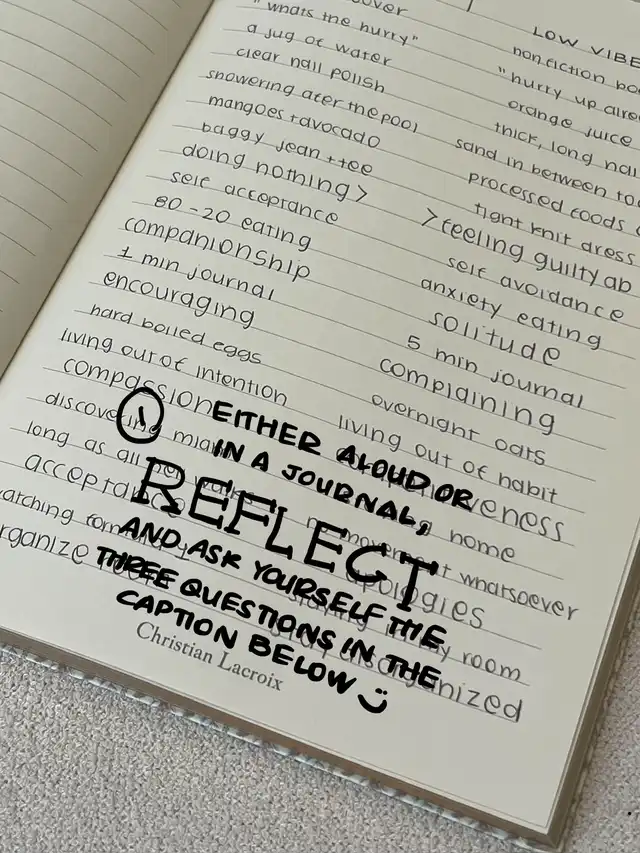 "whats the hurry"
a jug of water
clear nail polish
showering after the pool
mangoes + avocado
baggy jean + tee
doing nothing >
self acceptance
80-20 eating
companionship
1 min journal
encouraging
hard boiled eggs
living out of intention
compassion
discovering
long as all
LOW VIBE
nonfiction
"hurry up
orange juice
thick, long
sand in between
processed foods
tight knit dress
> feeling guilty
self avoidance
anxiety eating
solitude
5 min journal
complaining
overnight oats
living out of habit
home
no movement whatsoever
apologies
my room
disorganized
1 EITHER ALOUD OR
IN A JOURNAL,
REFLECT
AND ASK YOURSELF THE
THREE QUESTIONS IN THE
CAPTION BELOW
Christian Lacroix